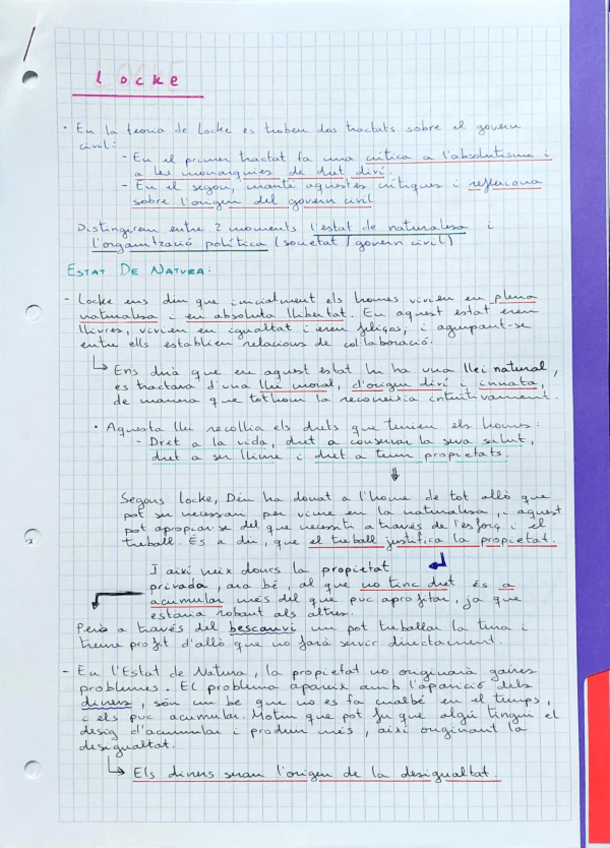 Locke
· En la teoria de Locke es troben dos tractats sobre el govern
civil:
- En el primer tractat fa una crítica a l'absolutisme i
a les monarquies de dret diví.
- En el segon, manté aquestes crítiques i reflexiona
sobre l'origen del govern civil
Distingirem entre 2 moments l'estat de naturalesa i
l'organització política (societat / govern civil)
ESTAT DE NATURA:
- Locke ens diu que inicialment els homes vivien en plena
naturalesa i en absoluta llibertat. En aquest estat eren
lliures, vivien en igualtat i eren feliços, i agrupant-se
entre ells establien relacions de col·laboració.
↳ Ens dirà que en aquest estat hi ha una llei natural,
es tractava d'una llei moral, d'origen diví i innata,
de manera que tothom la reconeixia intuitivament.
· Aquesta llei recollia els drets que tenien els homes:
- Dret a la vida, dret a conservar la seva salut,
dret a ser lliure i dret a tenir propietats.
Segons Locke, Déu ha donat a l'home de tot allò que
pot ser necessari per viure en la naturalesa, i aquest
pot apropiar-se del que necessiti a través de l'esforç i el
treball. És a dir, que el treball justifica la propietat.
I així neix doncs la propietat
privada, ara bé, al que no tinc dret és a
acumular més del que puc aprofitar, ja que
estaria robant als altres.
Però a través del bescanvi un pot treballar la terra i
treure profit d'allò que no farà servir directament.
- En l'Estat de Natura, la propietat no originarà gaires
problemes. El problema apareix amb l'aparició dels
diners, són un be que no es fa malbé en el temps,
i els puc acumular. Motiu que pot fer que algú tingui el
desig d'acumular i produir més, així originant la
desigualtat.
↳ Els diners seran l'origen de la desigualtat.